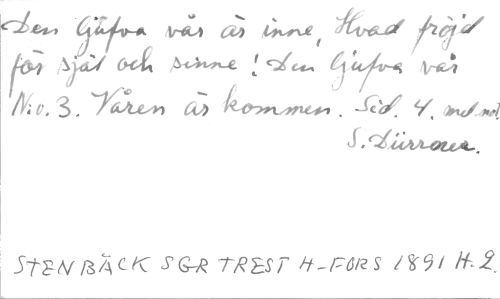 Den ljufva vår är inne, Hvad fröjd
för själ och sinne! Den ljufva vår
N:o. 3. Våren är kommen. Sid. 4. med not.
S. Dürroner.
STENBÄCK SGR TREST H-FORS 1891 H. 2.